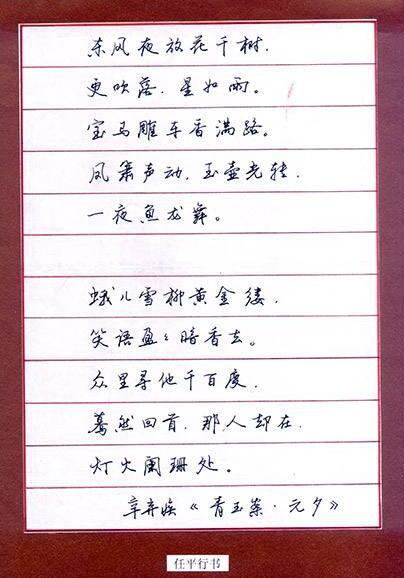 东风夜放花千树，
更吹落，星如雨。
宝马雕车香满路。
凤箫声动，玉壶光转，
一夜鱼龙舞。
蛾儿雪柳黄金缕，
笑语盈〻暗香去。
众里寻他千百度，
蓦然回首，那人却在，
灯火阑珊处。
辛弃疾《青玉案·元夕》
任平行书